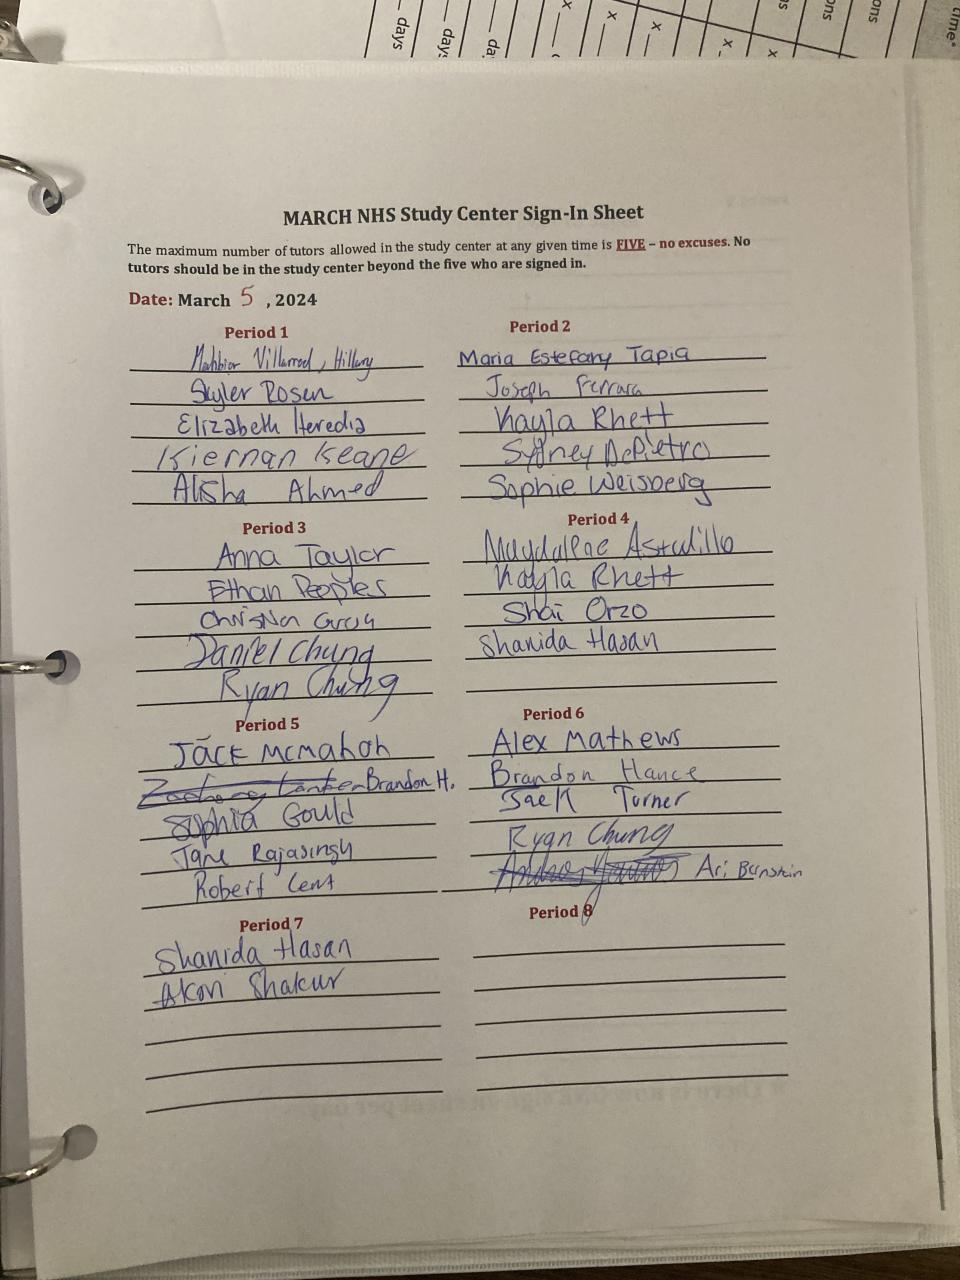 days
days
da
time*
ons
ons
MARCH NHS Study Center Sign-In Sheet
The maximum number of tutors allowed in the study center at any given time is FIVE – no excuses. No
tutors should be in the study center beyond the five who are signed in.
Date: March 5, 2024
Period 1
Villarreal, Hillary
Skyler Rosen
Elizabeth Heredia
Kiernan Keane
Alisha Ahmed
Period 2
Maria Estefany Tapia
Joseph Ferrara
Kayla Rhett
Sydney DePietro
Sophie Weisberg
Period 3
Anna Taylor
Ethan Peoples
Daniel Chung
Ryan Chung
Period 4
Kayla Rhett
Shai Orzo
Shanida Hasan
Period 5
Jack McMahon
Brandon H.
Sophia Gould
Jane Rajasingh
Robert Lent
Period 6
Alex Mathews
Brandon Hance
Jack Turner
Ryan Chung
Ari Bernstein
Period 7
Shanida Hasan
Akori Shakur
Period 8